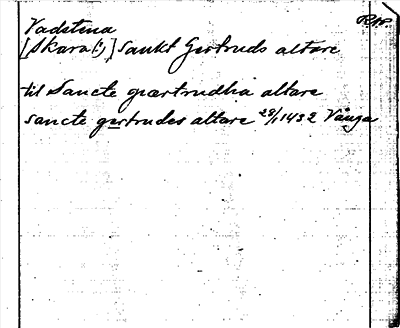 Vadstena RAP
[Skara(!)] Sankt Gertruds altare
til Sancte gærtrudha altare
sancte gertrudes altare 29/1 1432 Vånga